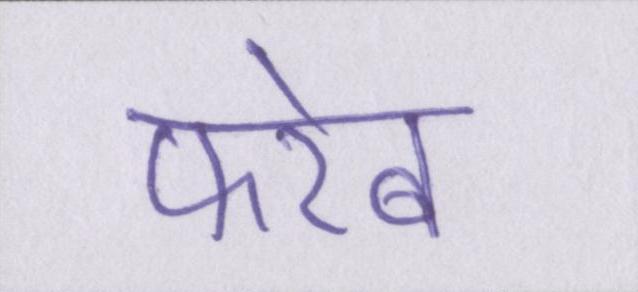 फरेब